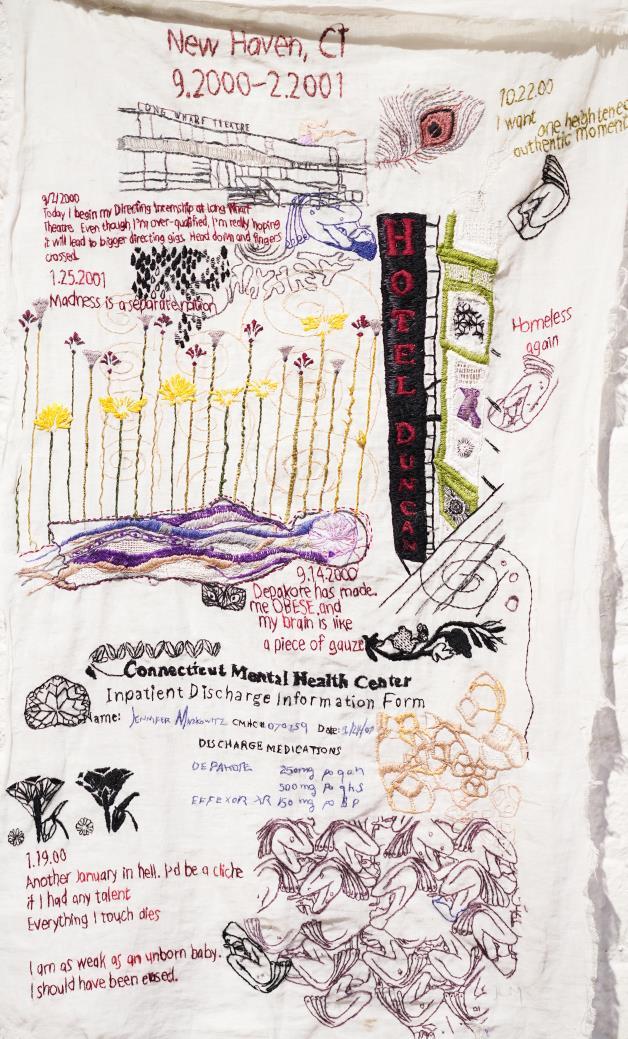 New Haven, CT
9.2000-2.2001
10.22.00
I want one heightened
authentic moment
LONG WHARF THEATRE
9/2/2000
Today I begin my Directing Internship at Long Wharf
Theatre. Even though I'm over-qualified, I'm really hoping
it will lead to bigger directing gigs. Head down and fingers
crossed.
1.25.2001
Madness is a separate nation
HOTEL DUNCAN
Homeless
again
9.14.2000
Depakote has made
me OBESE and
my brain is like
a piece of gauze
Connecticut Mental Health Center
Inpatient Discharge Information Form
Name: JENNIFER CMHC# 070159 Date:
DISCHARGE MEDICATIONS
DEPAKOTE 250mg po qam
500mg po qhs
EFFEXOR XR 150 mg po
1.19.00
Another January in hell. I'd be a cliche
if I had any talent
Everything I touch dies
I am as weak as an unborn baby.
I should have been erased.